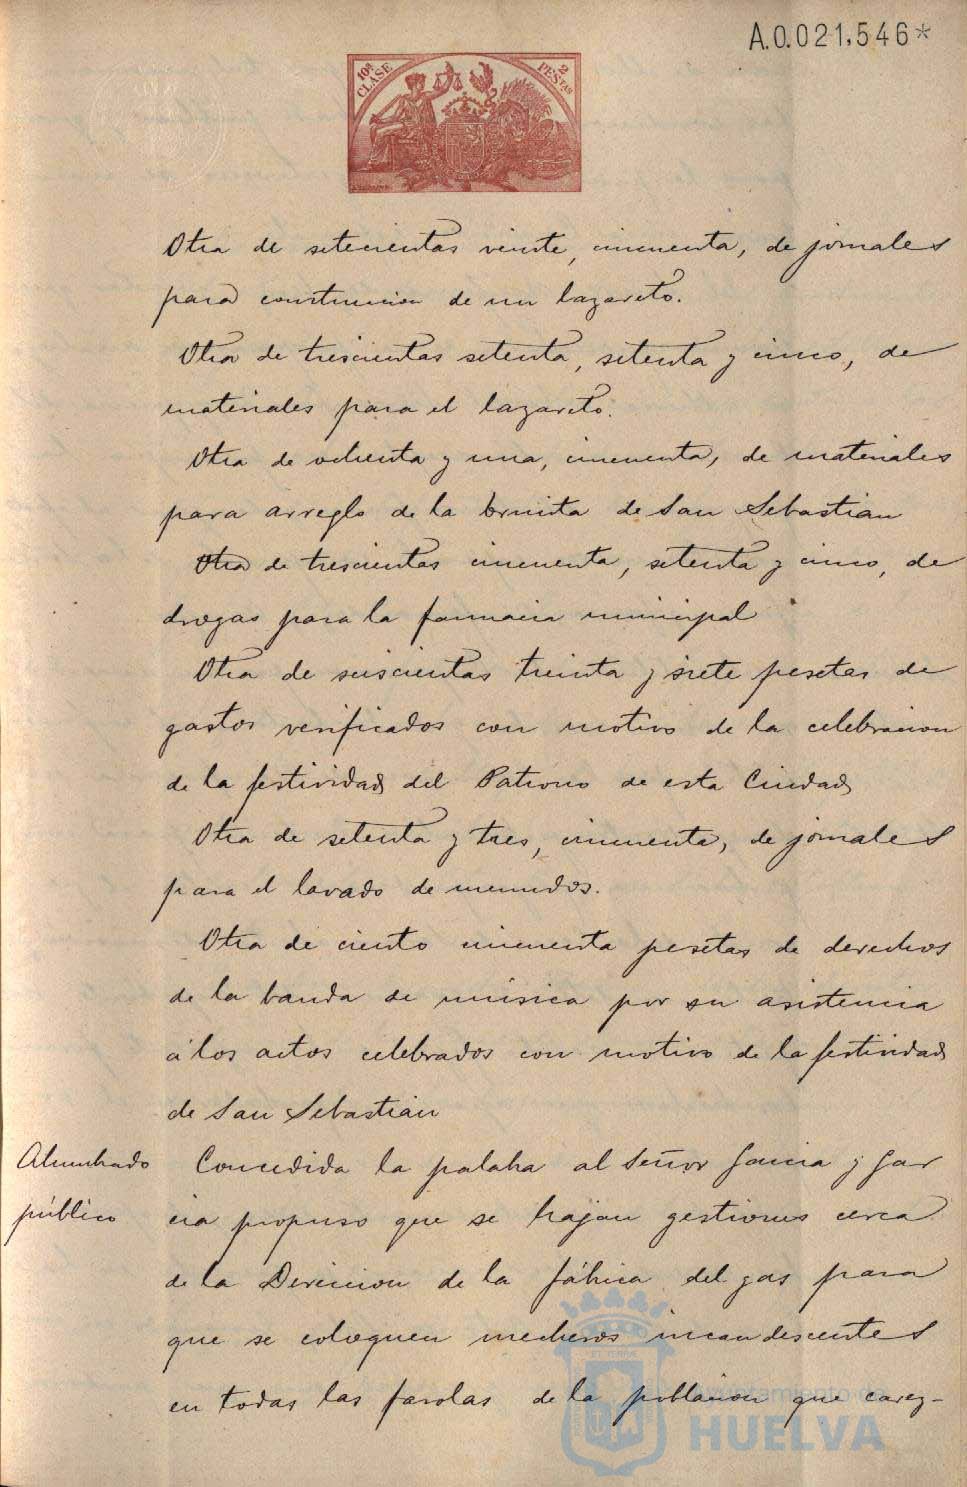 A.0.021,546*
10ª CLASE
2 PESTAS
Otra de setecientas veinte, cincuenta, de jornales
para construccion de un lazareto.
Otra de trescientas setenta, setenta y cinco, de
materiales para el lazareto.
Otra de ochenta y una, cincuenta, de materiales
para arreglo de la Ermita de San Sebastian
Otra de trescientas cincuenta, setenta y cinco, de
drogas para la farmacia municipal
Otra de seiscientas treinta y siete pesetas de
gastos verificados con motivo de la celebracion
de la festividad del Patrono de esta Ciudad
Otra de setenta y tres, cincuenta, de jornales
para el lavado de menudos.
Otra de ciento cincuenta pesetas de derechos
de la banda de música por su asistencia
á los actos celebrados con motivo de la festividad
de San Sebastián
Alumbrado
público
Concedida la palabra al Señor Garcia y Gar
cia propuso que se hagan gestiones cerca
de la Direccion de la fábrica del gas para
que se coloquen mecheros incandescentes
en todas las farolas de la poblacion que carez-
Ayuntamiento de
HUELVA